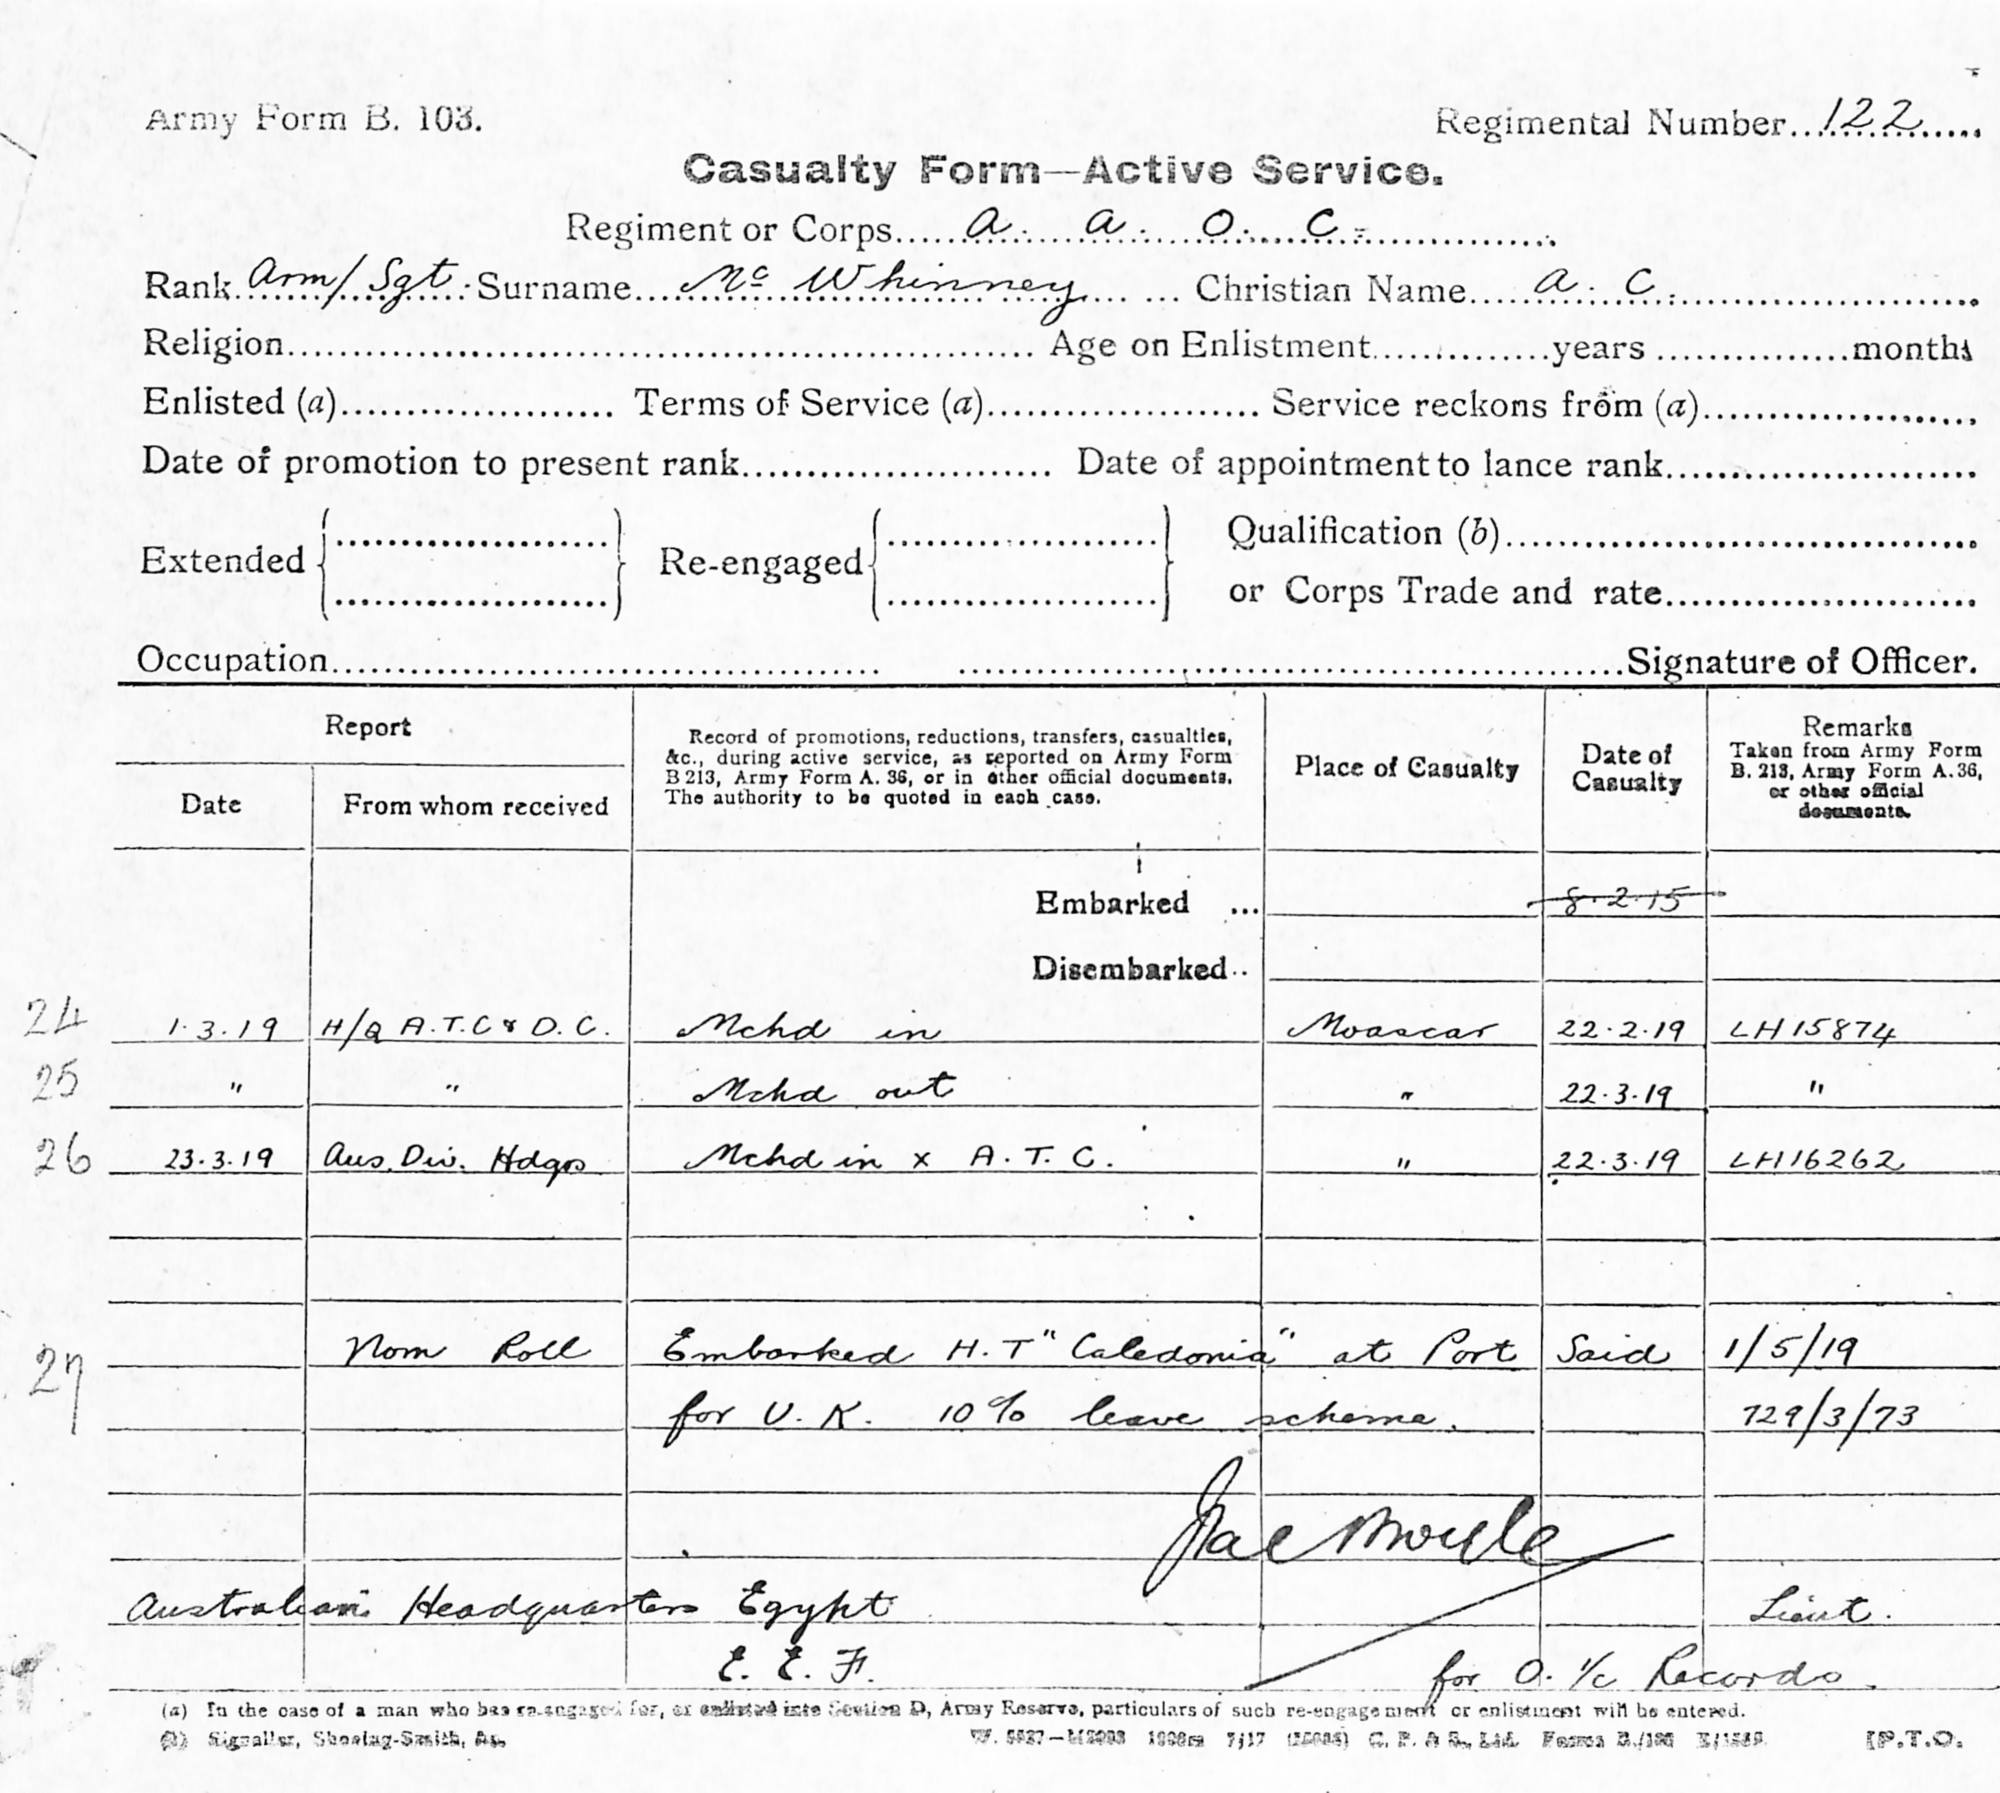 Army Form B. 103.
Regimental Number 122
Casualty Form—Active Service.
Regiment or Corps A. A. O. C.
Rank Arm/Sgt Surname Mc Whinney Christian Name A. C.
Religion Age on Enlistment years months
Enlisted (a) Terms of Service (a) Service reckons from (a)
Date of promotion to present rank Date of appointment to lance rank
Extended Re-engaged Qualification (b)
or Corps Trade and rate
Occupation Signature of Officer.
Report
Date
From whom received
Record of promotions, reductions, transfers, casualties,
&c., during active service, as reported on Army Form
B 213, Army Form A. 36, or in other official documents.
The authority to be quoted in each case.
Place of Casualty
Date of
Casualty
Remarks
Taken from Army Form
B. 213, Army Form A. 36,
or other official
documents.
Embarked ... 8.2.15
Disembarked..
24 1.3.19 H/Q A.T.C & D.C. Mchd in Moascar 22.2.19 LH15874
25 " " Mchd out " 22.3.19 "
26 23.3.19 Aus. Div. Hdqrs Mchd in x A.T.C. " 22.3.19 LH16262
27 Nom Roll Embarked H.T "Caledonia" at Port Said 1/5/19
for U.K. 10% leave scheme. 729/3/73
Australian Headquarters Egypt Lieut.
E. E. F. for O. i/c Records.
(a) In the case of a man who has re-engaged for, or enlisted into Section D, Army Reserve, particulars of such re-engagement or enlistment will be entered.
(b) Signaller, Shoeing-Smith, &c.
[P.T.O.